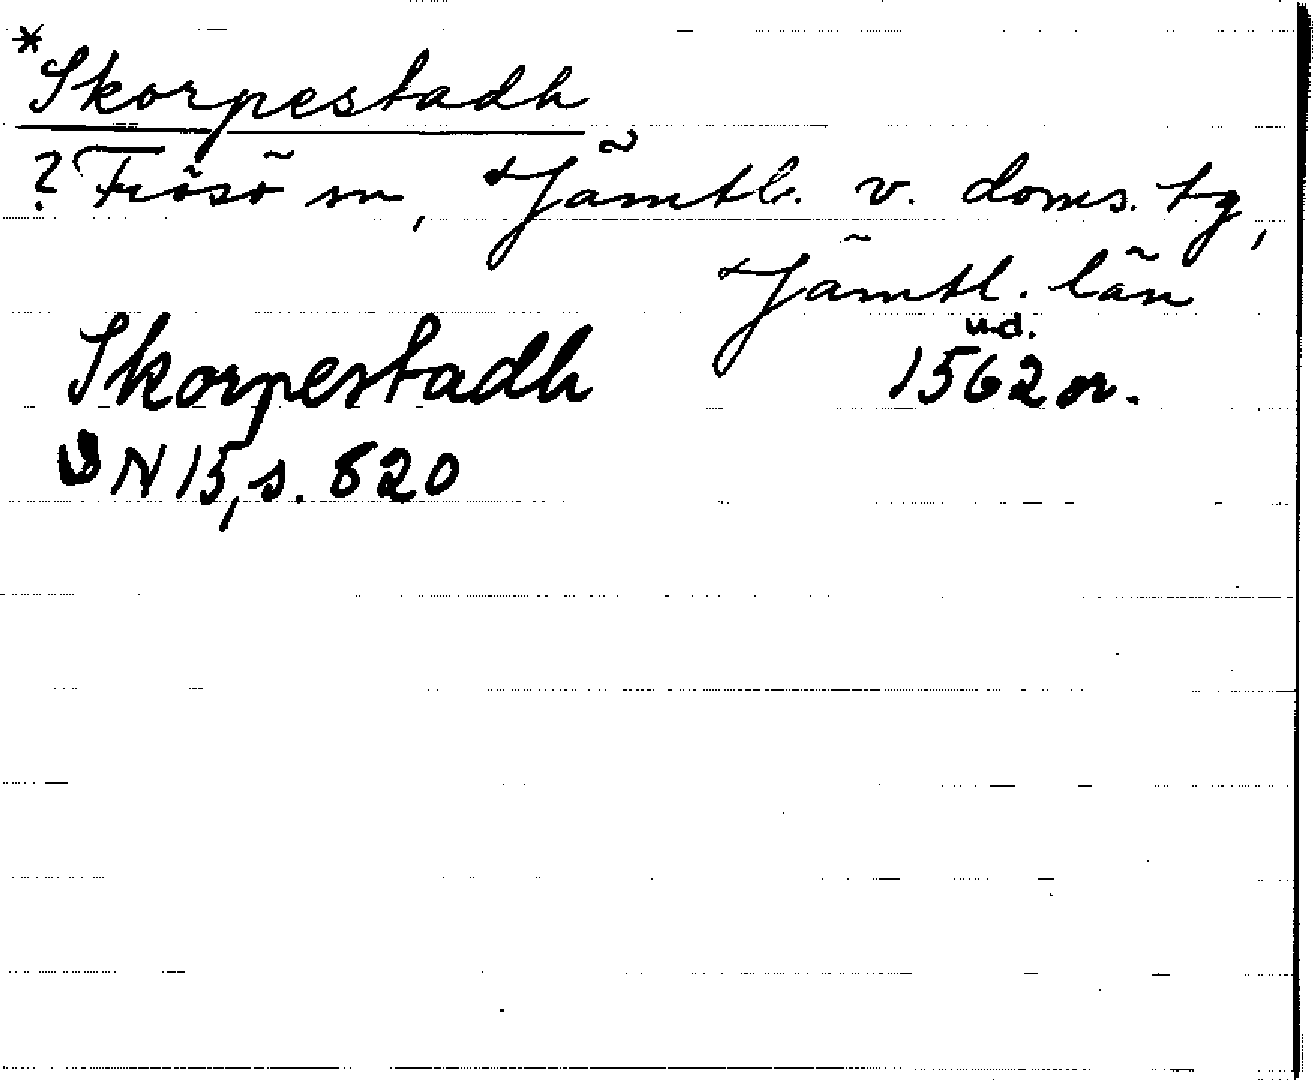 *Skorpestadh
? Frösö sn, Jämtl. v. doms. tg,
Jämtl. län
Skorpestadh u.d. 1562 or.
DN 15, s. 820